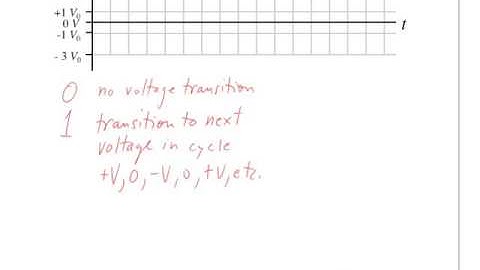 +1 V₀
0 V
t
-1 V₀
- 3 V₀
0 no voltage transition
1 transition to next
voltage in cycle
+V, 0, -V, 0, +V, etc.